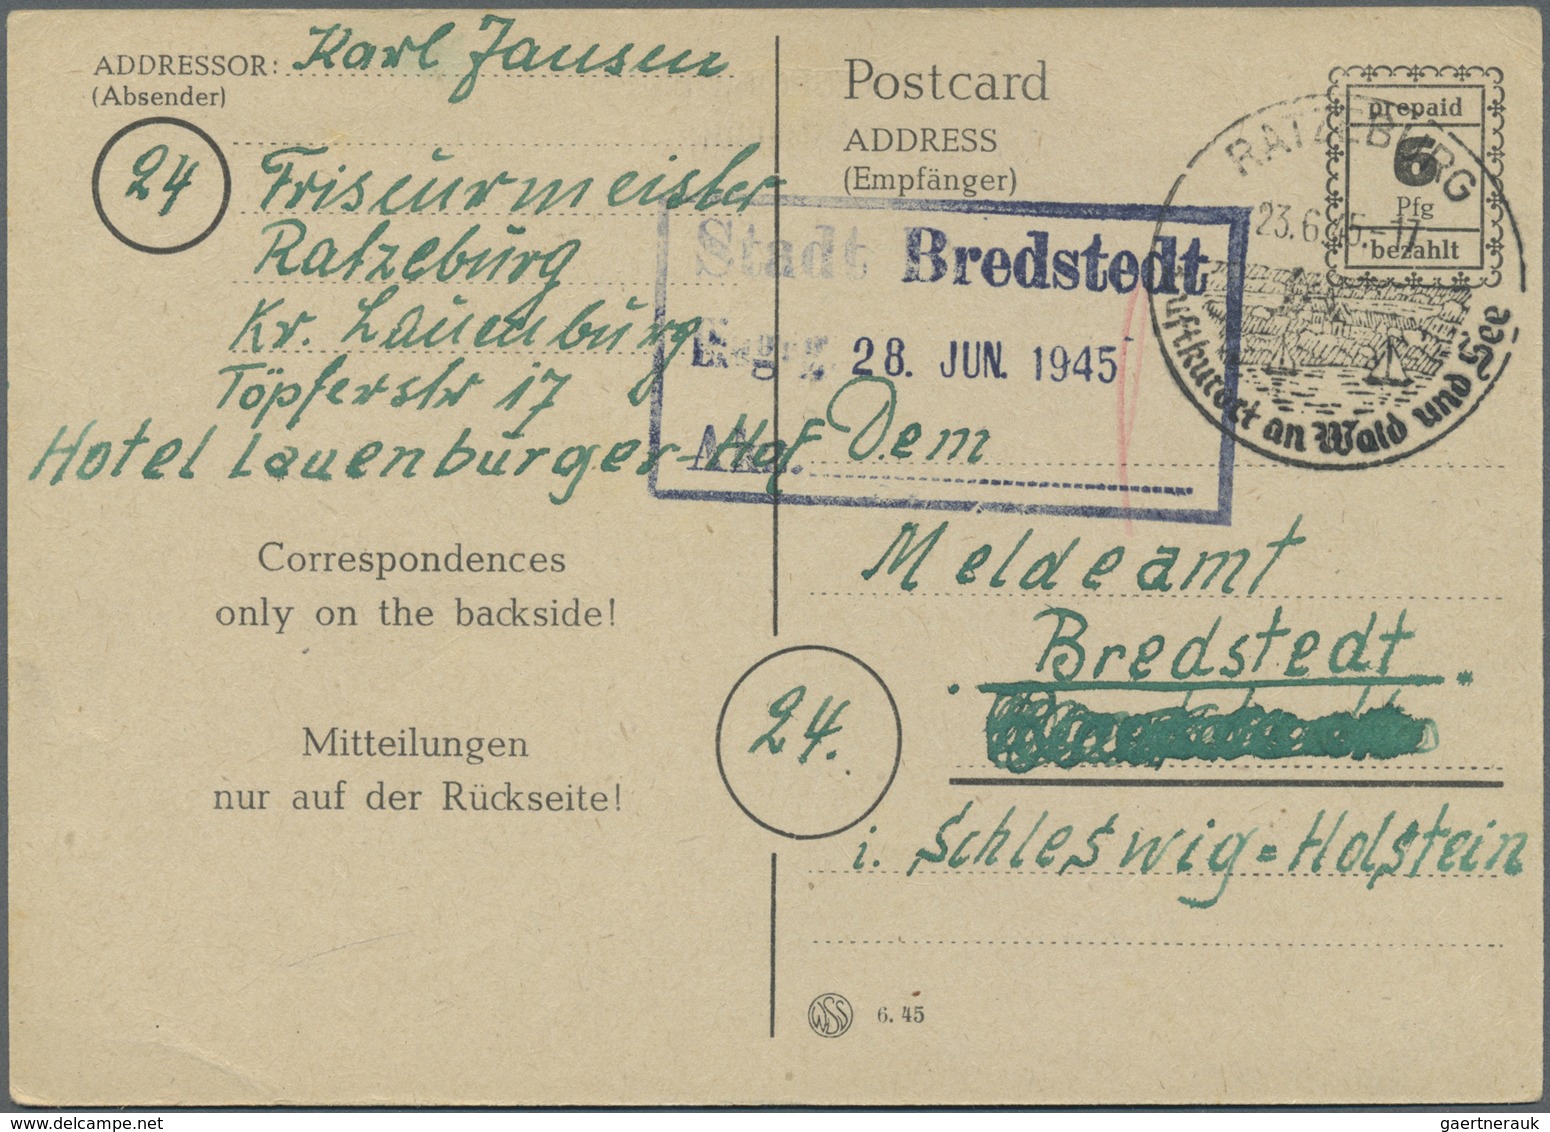 ADDRESSOR: Karl Jansen
(Absender)
24
Friseurmeister
Ratzeburg
Kr. Lauenburg
Töpferstr 17
Hotel Lauenburger-Hof
Correspondences
only on the backside!
Mitteilungen
nur auf der Rückseite!
Postcard
ADDRESS
(Empfänger)
prepaid
6
Pfg
bezahlt
RATZEBURG
23.6.45.-17
Luftkurort an Wald und See
Stadt Bredstedt
Eingeg. 28. JUN. 1945
Dem
Meldeamt
Bredstedt
24.
i. Schleswig=Holstein
WSS 6. 45
gaertnerauk
delcampe.net